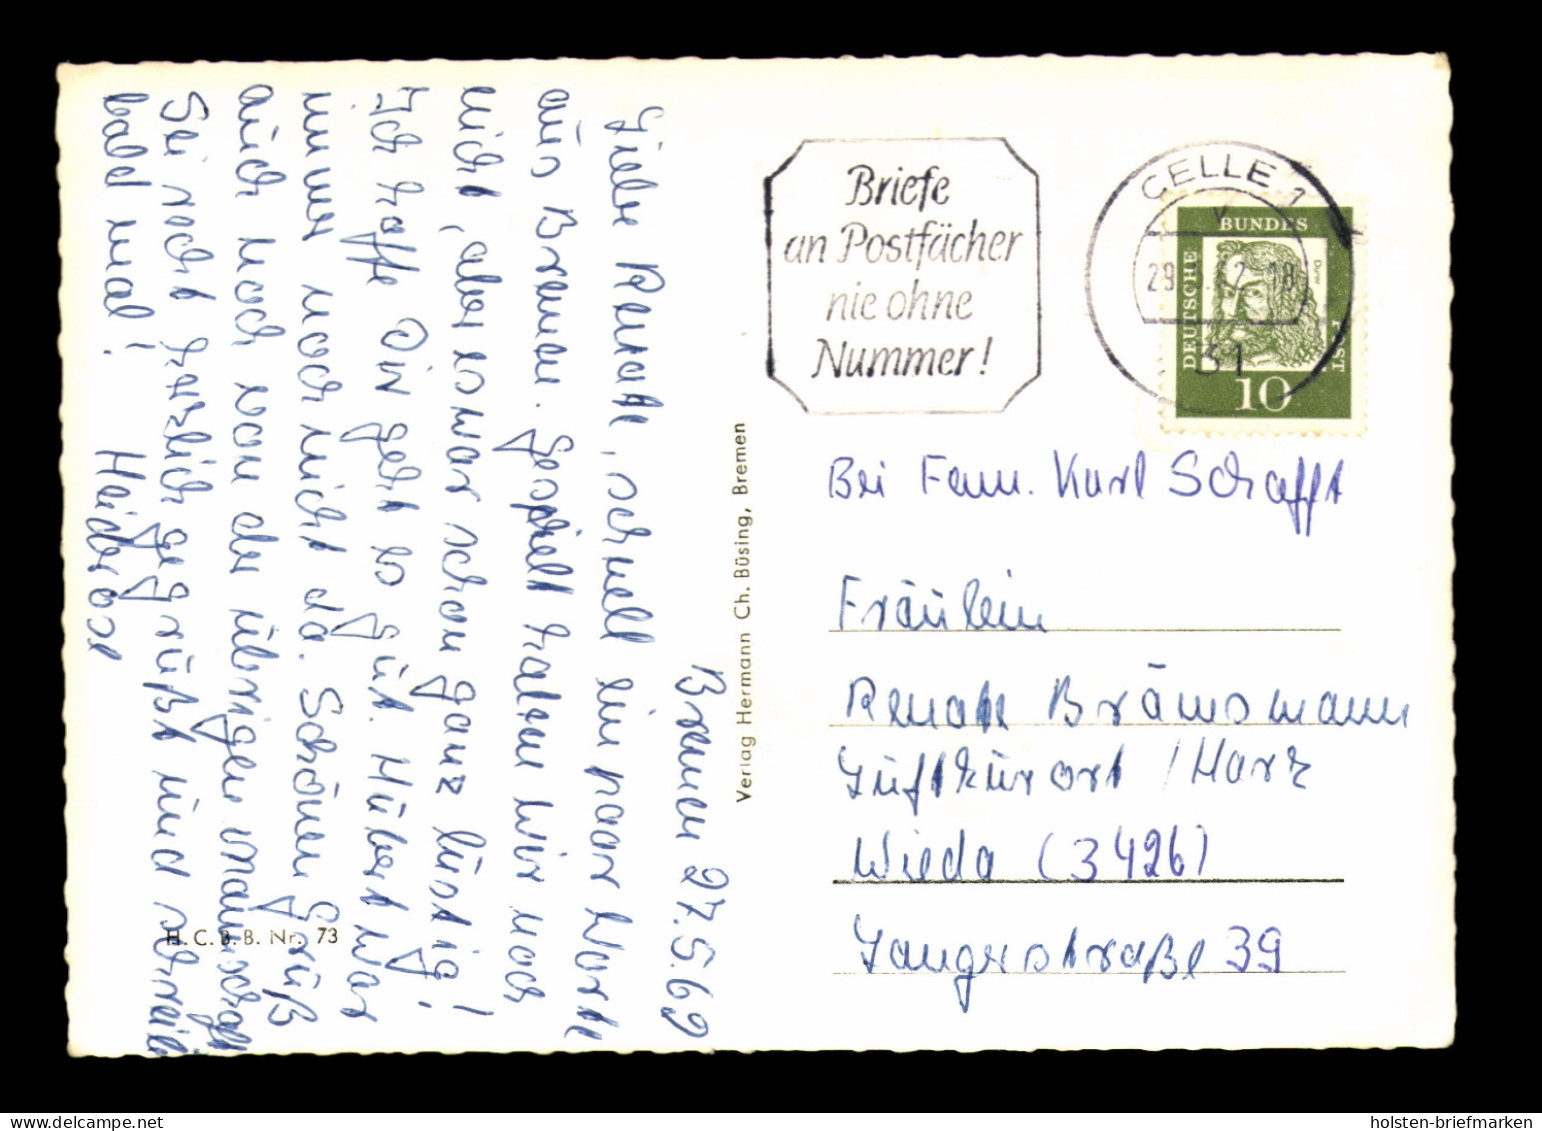 Bremen 27.5.62
Liebe Renate, schnell ein paar Worte
aus Bremen. Gespielt haben wir noch
nicht, aber es war schon ganz lustig!
Ich hoffe Dir geht es gut. Hubert war
immer noch nicht da. Schönen Gruß
auch noch von der übrigen Mannschaft
Sei recht herzlich gegrüßt und schreib
bald mal! Heiderose
H.C.B.B. Nr. 73
Verlag Hermann Ch. Büsing, Bremen
Briefe
an Postfächer
nie ohne
Nummer!
CELLE 1
v
29 62-18
31
DEUTSCHE BUNDESPOST
Dürer
10
Bei Fam. Karl Schafft
Fräulein
Renate Brämsmann
Luftkurort / Harz
Wieda (3426)
Langerstraße 39
delcampe.net
holsten-briefmarken